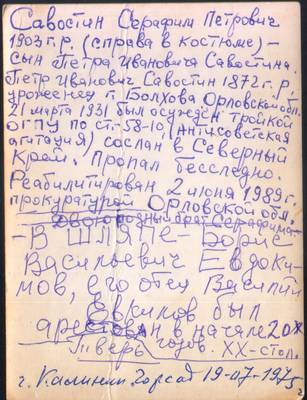 Савостин Серафим Петрович
1903 г.р. (справа в костюме) –
сын Петра Ивановича Савостина
Петр Иванович Савостин 1872 г.р.,
уроженец г. Болхова Орловской обл.
21 марта 1931 был осужден тройкой
ОГПУ по ст.-58-10 (антисоветская
агитация) сослан в Северный
край. Пропал бесследно.
Реабилитирован 2 июня 1989 г.
прокуратурой Орловской обл.
Двоюродный брат Серафима –
– В шляпе – Борис
Васильевич Евдоки-
мов, его отец Василий
Евкимов был
арестован в начале 20х
годов. XX – стол.
Тверь
г. Калинин Горсад 19-07-1975